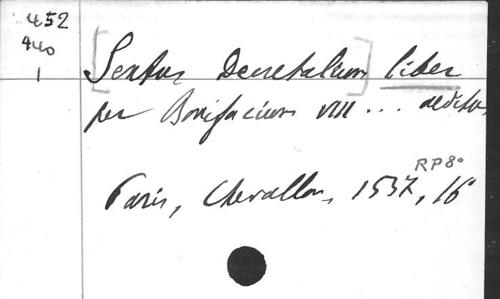 452
440
1
[Sextus Decretalium] liber
per Bonifacium VIII ... aeditus
RP8°
Paris, Chevallon, 1537, 16°